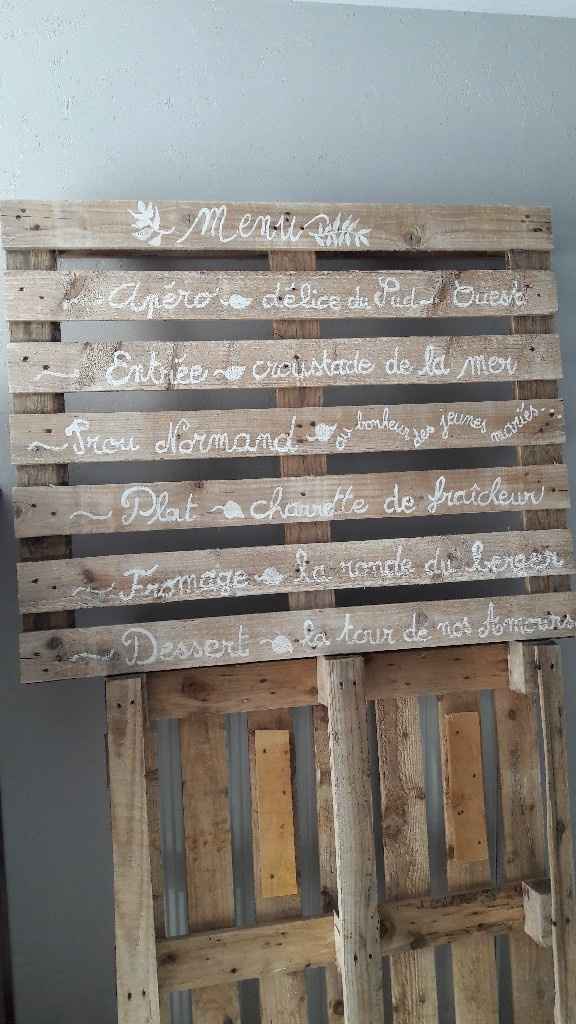 Menu
Apéro délice du Sud-Ouest
Entrée croustade de la mer
Trou Normand au bonheur des jeunes mariés...
Plat charrette de fraîcheur
Fromage la ronde du berger
Dessert la tour de nos Amours